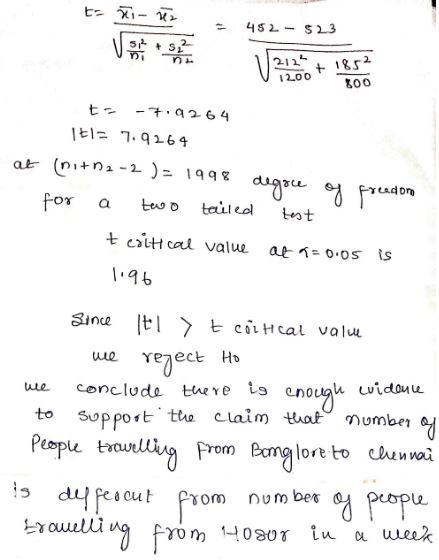 t = x̄1 - x̄2 / √(s1²/n1 + s2²/n2) = 452 - 523 / √(212²/1200 + 185²/800)
t = -7.9264
|t| = 7.9264
at (n1+n2-2) = 1998 degree of freedom
for a two tailed test
t critical value at α=0.05 is
1.96
Since |t| > t critical value
we reject H0
we conclude there is enough evidence
to support the claim that number of
People travelling from Banglore to chennai
is different from number of people
travelling from Hosur in a week